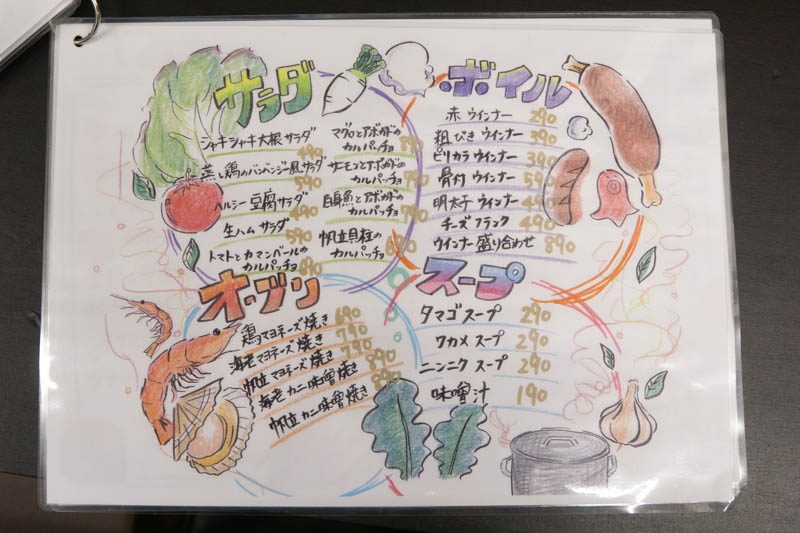 サラダ
シャキシャキ大根サラダ
490
蒸し鶏のバンバンジー風サラダ
590
ヘルシー豆腐サラダ
490
生ハムサラダ
590
トマトとカマンベールの
カルパッチョ 690
マグロとアボカドの
カルパッチョ
サーモンとアボカドの
カルパッチョ 790
白身魚とアボカドの
カルパッチョ 790
帆立貝柱の
カルパッチョ
ボイル
赤ウインナー 290
粗びきウインナー 390
ピリカラウインナー 390
骨付ウインナー 590
明太子ウインナー 490
チーズフランク 490
ウインナー盛り合わせ 890
オーブン
鶏マヨネーズ焼き 690
海老マヨネーズ焼き 790
帆立マヨネーズ焼き 790
海老カニ味噌焼き 890
帆立カニ味噌焼き 890
スープ
タマゴスープ 290
ワカメスープ 290
ニンニクスープ 290
味噌汁 190